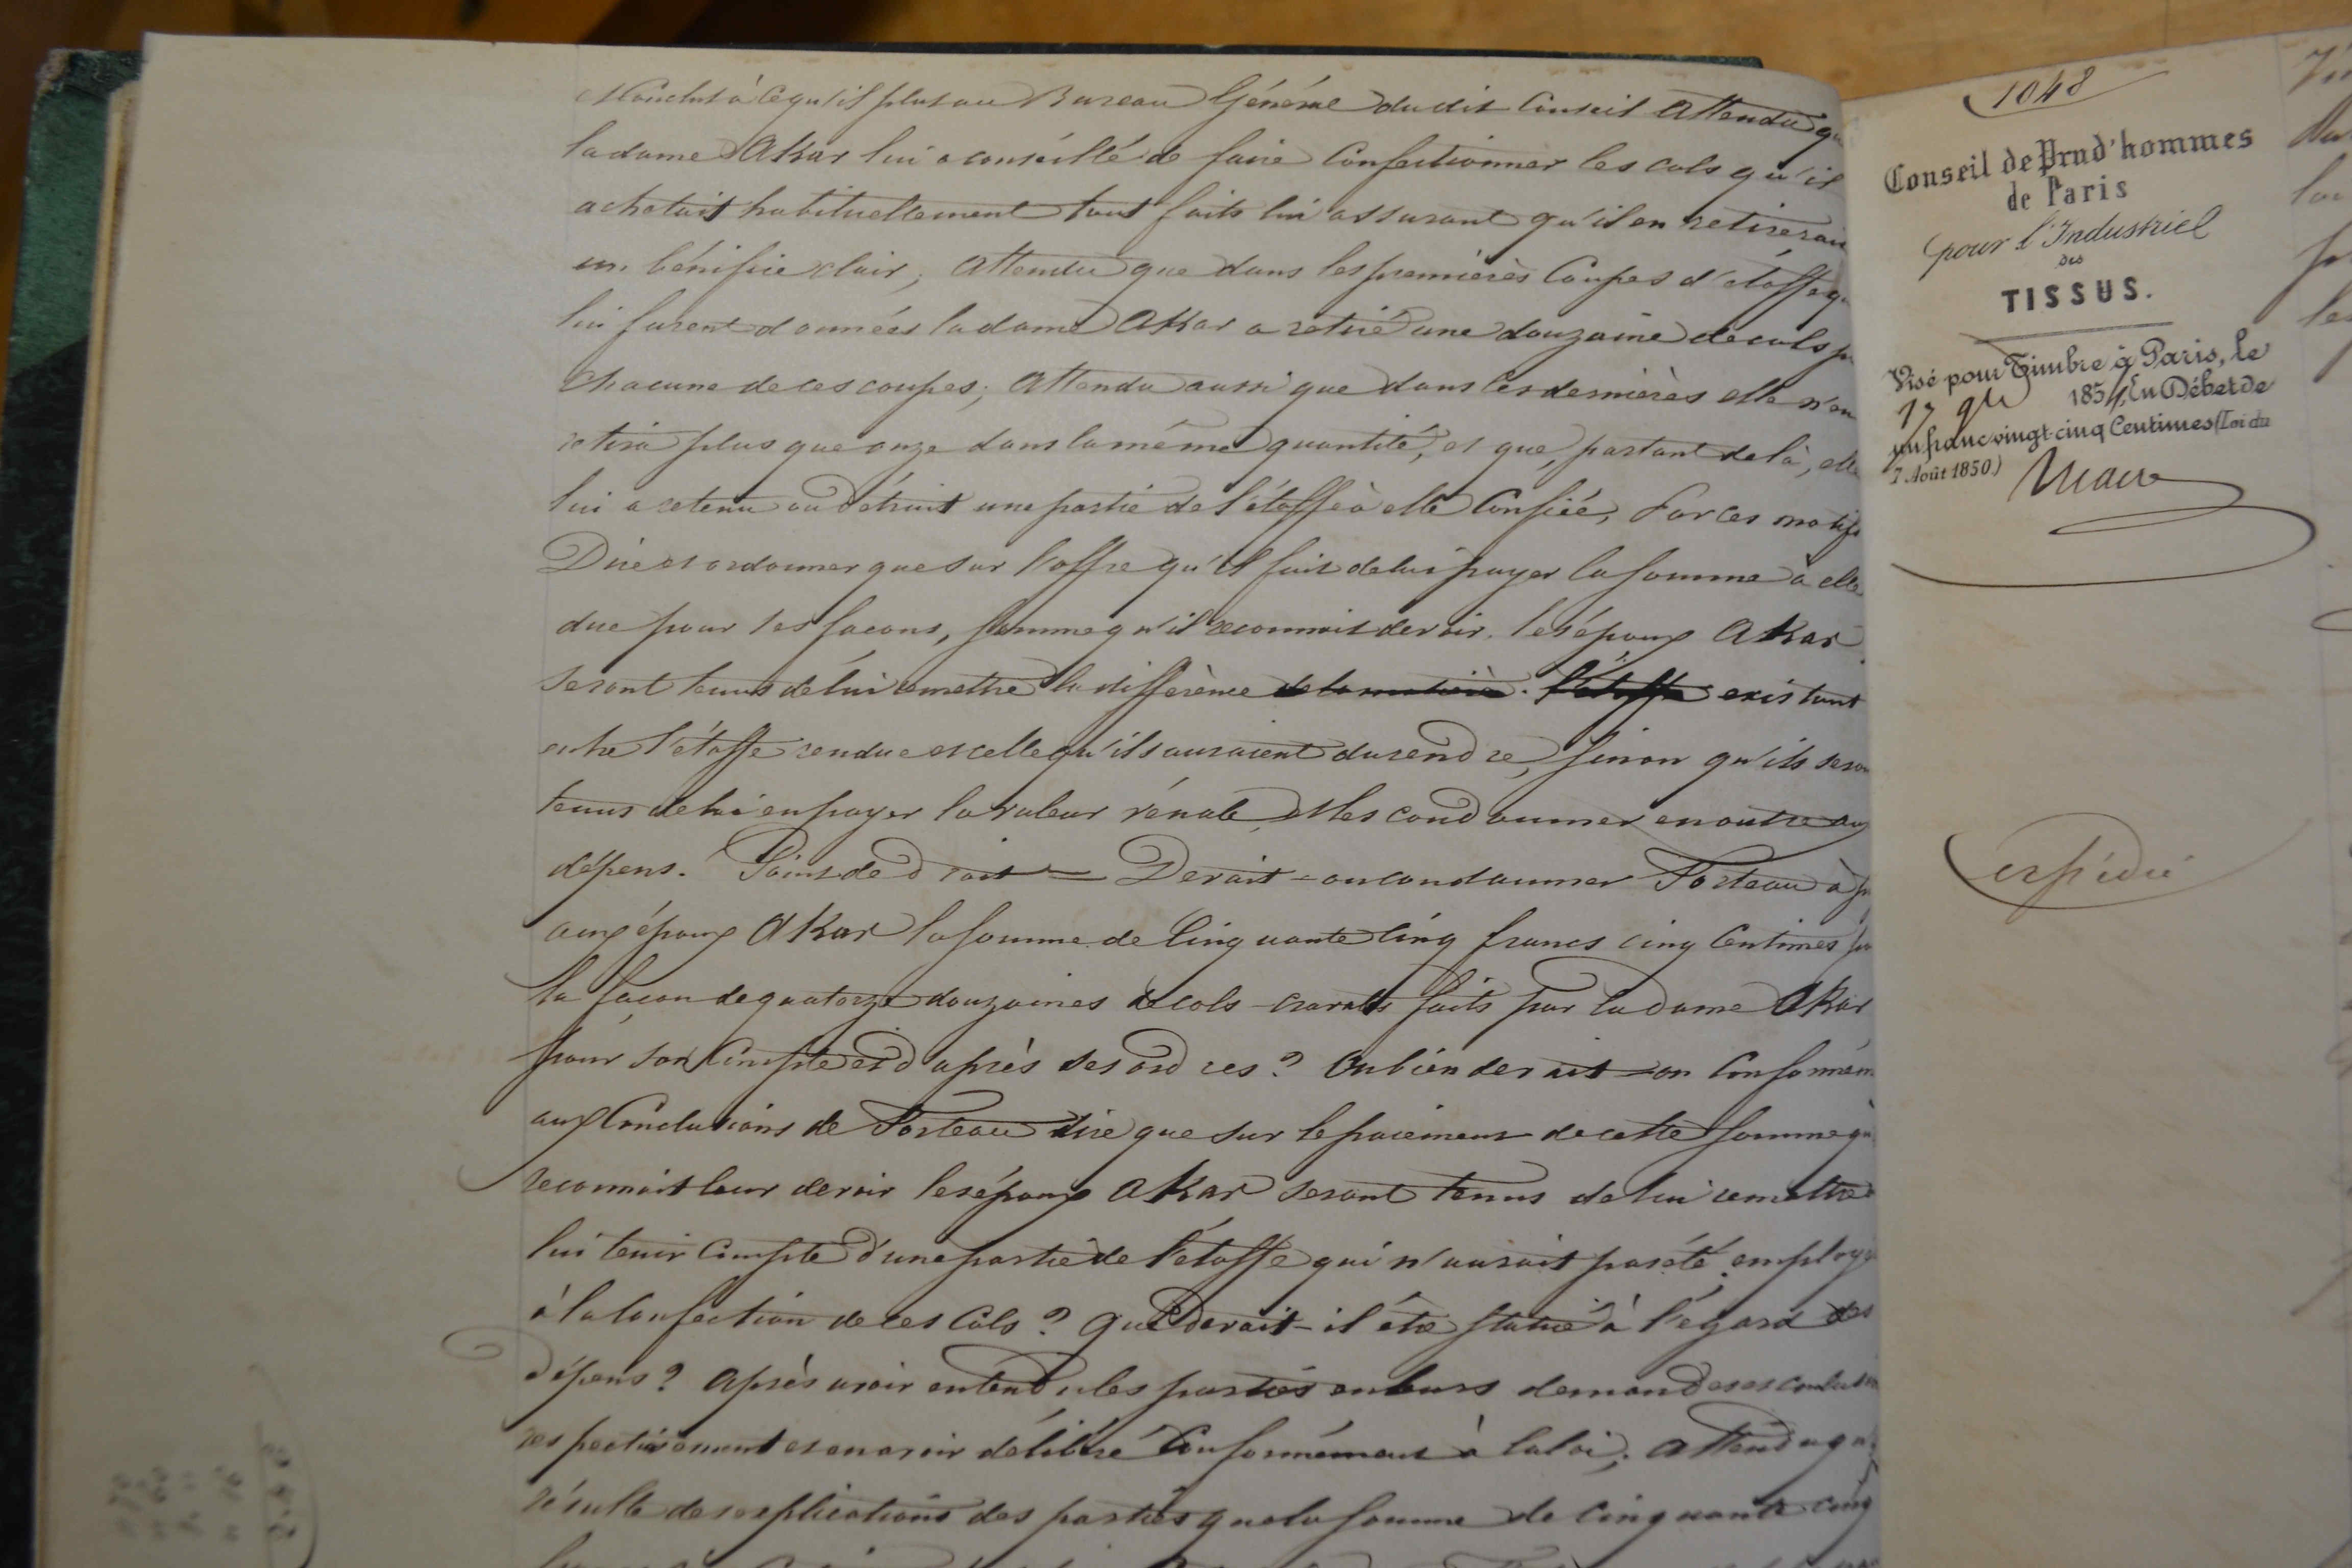 et conclut à ce qu'il plut au Bureau Général dudit Conseil Attendu qu
la dame Akar lui a conseillé de faire Confectionner les cols qu'il
achetait habituellement tout faits lui assurant qu'il en retirerait
un bénéfice clair; attendu que dans les premières Coupes d'étoffe qu
lui furent données la dame Akar a retiré une douzaine de cols p
chacune de ces coupes; attendu aussi que dans les dernières elle n'en
retira plus que onze dans la même quantité, et que, partant de là, elle
lui a retenu ou détruit une partie de l'étoffe à elle Confiée; Par ces motifs
Dire et ordonner que sur l'offre qu'il fait de lui payer la somme à elle
due pour les façons, somme qu'il reconnait devoir. les époux Akar
seront tenus de lui remettre la différence de la matière. l'étoffe existant
entre l'étoffe rendue et celle qu'ils auraient du rendre, sinon qu'ils seron
tenus de lui en payer la valeur vénale, et les condamner en outre aux
dépens. Point de droit = Devait-on condamner Porteau à p
aux époux Akar la somme de Cinquante Cinq francs cinq Centimes po
la façon de quatorze douzaines de cols-cravates faits par la dame Akar
pour son Compte et d'après ses ordres? Ou bien devait-on Conformém
aux Conclusions de Porteau dire que sur le paiement de cette somme qu
reconnait leur devoir les époux Akar seront tenus de lui remettre
lui tenir Compte d'une partie de l'étoffe qui n'aurait pas été employé
à la Confection de ces Cols? Que devait-il être statué à l'égard des
dépens? Après avoir entendu les parties en leurs demandes et conclusion
respectivement et en avoir délibéré Conformément à la loi; Attendu qu
résulte des explications des parties que la somme de cinquante cinq
1048
Conseil de Prud'hommes
de Paris
pour l'Industriel
des
TISSUS.
Visé pour Timbre à Paris, le
17 9bre 1854, En Débet de
un franc vingt-cinq Centimes (Loi du
7 Août 1850)
expédié